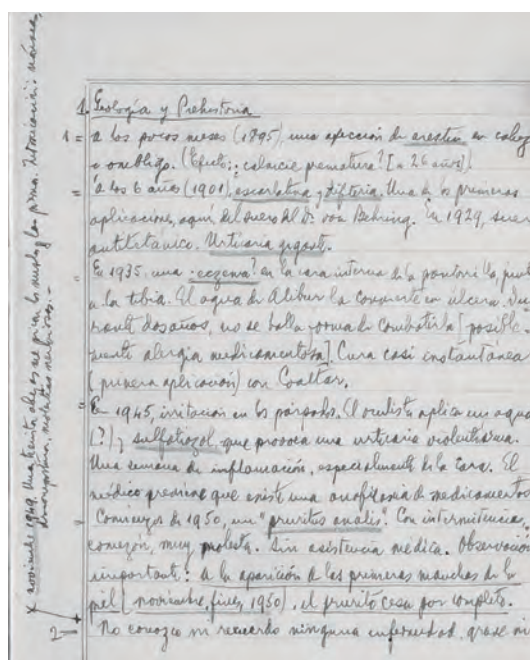 1. Geología y Prehistoria
1 = a los pocos meses (1895), una afección de en cabeza
o ombligo. (Efecto: calvicie prematura? [a 26 años].
= a los 6 años (1901), escarlatina y difteria. Una de las primeras
aplicaciones, aquí del suero del Dr. von Behring. En 1929, suero
antitetánico. Urticaria gigant.
= En 1935, una "eczema"? en la cara interna de la pantorrilla, junto
a la tibia. El agua de Alibur la convierte en úlcera. Du-
rante dos años, no se halla forma de combatirla [posible-
mente alergia medicamentosa]. Cura casi instantánea
(primera aplicación) con Coaltar.
= En 1945, irritación en los párpados. El oculista aplica un agua
(?) y sulfatiazol que provoca una urticaria violentísima.
Una semana de inflamación, especialmente de la cara. El
médico previene que existe una anafilaxia de medicamentos
= Comienzos de 1950, un "pruritus analis". Con intermitencias,
comezón, muy molesta. Sin asistencia médica. Observación
importante: a la aparición de las primeras manchas de la
piel [noviembre, fines, 1950), el prurito cesa por completo.
2 — No conozco ni recuerdo ninguna enfermedad, grave ni
x noviembre 1949. Una treintena abejas me pican los muslos y las piernas. Intoxicación: náuseas,
molestias nerviosas.-